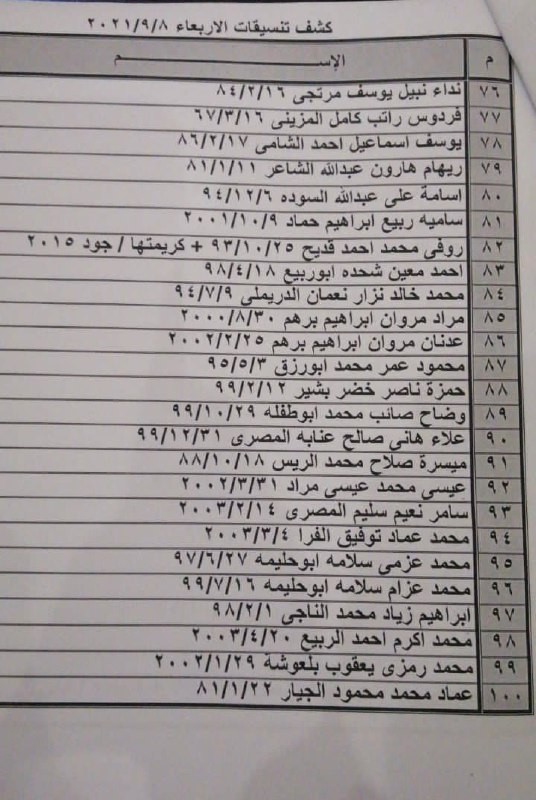 كشف تنسيقات الاربعاء ٢٠٢١/٩/٨
م الإســـم
٧٦ نداء نبيل يوسف مرتجى ٨٤/٢/١٦
٧٧ فردوس راتب كامل المزينى ٦٧/٣/١٦
٧٨ يوسف اسماعيل احمد الشامى ٨٦/٢/١٧
٧٩ ريهام هارون عبدالله الشاعر ٨١/١/١١
٨٠ اسامة على عبدالله السوده ٩٤/١٢/٦
٨١ ساميه ربيع ابراهيم حماد ٢٠٠١/١٠/٩
٨٢ روفى محمد احمد قديح ٩٣/١٠/٢٥ + كريمتها / جود ٢٠١٥
٨٣ احمد معين شحده ابوربيع ٩٨/٤/١٨
٨٤ محمد خالد نزار نعمان الدريملي ٩٤/٧/٩
٨٥ مراد مروان ابراهيم برهم ٢٠٠٠/٨/٣٠
٨٦ عدنان مروان ابراهيم برهم ٢٠٠٢/٢/٢٥
٨٧ محمود عمر محمد ابورزق ٩٥/٥/٣
٨٨ حمزة ناصر خضر بشير ٩٩/٢/١٢
٨٩ وضاح صائب محمد ابوطفله ٩٩/١٠/٢٩
٩٠ علاء هانى صالح عنابه المصرى ٩٩/١٢/٣١
٩١ ميسرة صلاح محمد الريس ٨٨/١٠/١٨
٩٢ عيسى محمد عيسى مراد ٢٠٠٢/٣/٣١
٩٣ سامر نعيم سليم المصرى ٢٠٠٣/٢/١٤
٩٤ محمد عماد توفيق الفرا ٢٠٠٣/٣/٤
٩٥ محمد عزمى سلامه ابوحليمه ٩٧/٦/٢٧
٩٦ محمد عزام سلامه ابوحليمه ٩٩/٧/١٦
٩٧ ابراهيم زياد محمد الناجى ٩٨/٢/١
٩٨ محمد اكرم احمد الربيع ٢٠٠٣/٤/٢٠
٩٩ محمد رمزى يعقوب بلعوشة ٢٠٠٢/١/٢٩
١٠٠ عماد محمد محمود الجيار ٨١/١/٢٢